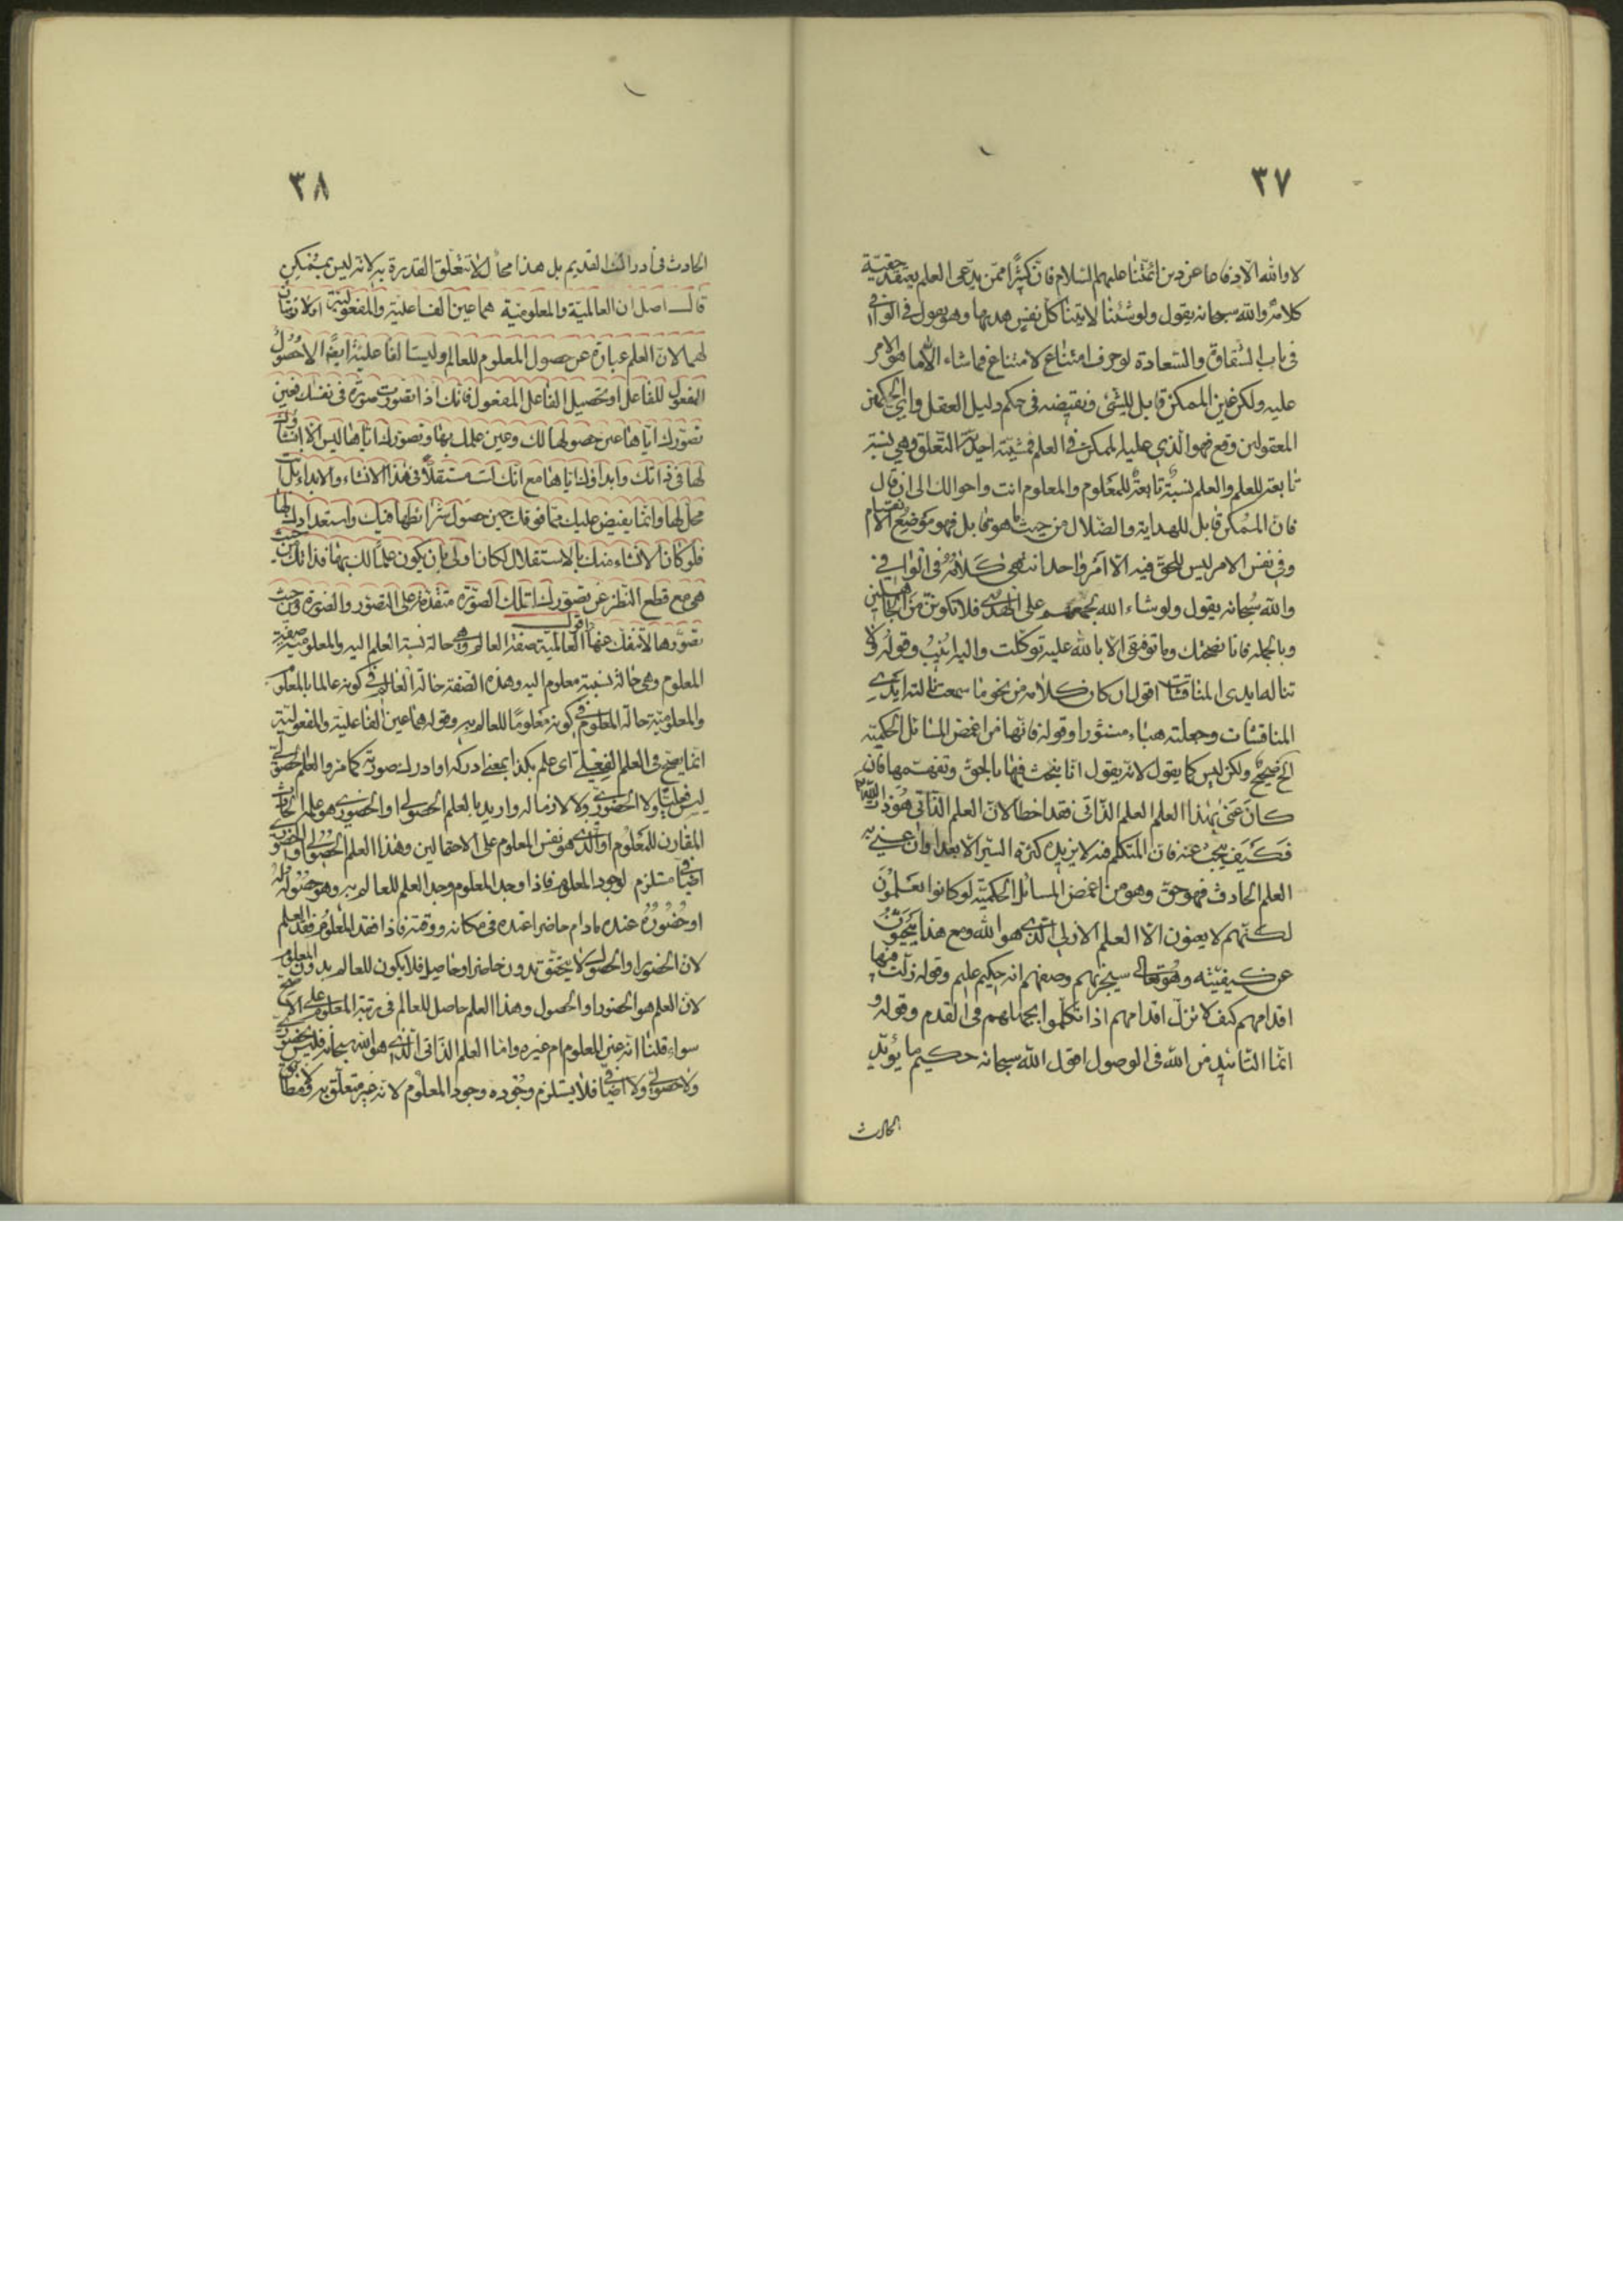 ٣٧
لا والله الا دفاعا عن دين ائمتنا عليهم السلام فان كثيرا ممن يدعى العلم يعتقد حقية
كلامه والله سبحانه يقول ولو شئنا لاتينا كل نفس هديها وهو يقول فى الوافى
فى باب الشقاوة والسعادة لو حرف امتناع لامتناع فما شاء الا ما هو الامر
عليه ولكن عين الممكن قابل للشئ ونقيضه فى حكم دليل العقل واى الحكمين
المعقولين وقع فهو الذى عليه الممكن فى العلم فمشيته احدية التعلق وهى نسبة
تابعة للعلم والعلم نسبة تابعة للمعلوم والمعلوم انت واحوالك الى ان قال
فان الممكن قابل للهداية والضلال من حيث ما هو قابل فهو موضع الانقسام
وفى نفس الامر ليس للحق فيه الا امر واحد انتهى كلامه فى الوافى
والله سبحانه يقول ولو شاء الله لجمعهم على الهدى فلا تكونن من الجاهلين
وبالجملة فانا نصحتك وما توفيقى الا بالله عليه توكلت واليه انيب وقوله لا
تناله ايدى المناقشات اقول ان كان كلامه من نحو ما سمعت نالته ايدى
المناقشات وجعلته هباء منثورا وقوله فانها من اغمض المسائل الحكمية
الخ صحيح ولكن ليس كما يقول لانه يقول انا نبحث فيها بالحق وتفهمها فان
كان عنى بهذا العلم العلم الذاتى فقد اخطا لان العلم الذاتى هو ذات الله
فكيف يبحث عنه فان المتكلم فيه لا يزيده كثرة السير الا بعدا وان عنى به
العلم الحادث فهو حق وهو من اغمض المسائل الحكمية لو كانوا يعلمون
لكنهم لا يعنون الا العلم الازلى الذى هو الله ومع هذا يبحثون
عن كيفيته وهو تعالى سيجزيهم وصفهم انه حكيم عليم وقوله زلت فيها
اقدامهم كيف لا تزل اقدامهم اذا تكلموا بجهلهم فى القدم وقوله و
انما التاييد من الله فى الوصول اقول الله سبحانه حكيم ما يؤيد
الحادث
٣٨
الحادث فى ادراك القديم بل هذا محال لا تتعلق القدرة به لانه ليس بممكن
قال اصل ان العالمية والمعلومية هما عين الفاعلية والمفعولية او لازمتان
لهما لان العلم عبارة عن حصول المعلوم للعالم وليست الفاعلية ايضا الا حصول
المفعول للفاعل او تحصيل الفاعل المفعول فانك اذا تصورت صورة فى نفسك فعين
تصورك اياها عين حصولها لك وعين علمك بها وتصورك اياها ليس الا انشاؤك
لها فى ذاتك وابداؤك اياها مع انك لست مستقلا فى هذا الانشاء والابداء بل انت
محل لها وانما يفيض عليك مما فوقك حين حصول شرائطها فيك واستعدادك لها
فلو كان الانشاء منك بالاستقلال لكان اولى بان يكون علما لك بها فذاتك من حيث
هى مع قطع النظر عن تصورك لتلك الصورة متقدمة على التصور والصورة ومن حيث
تصورها لا تنفك عنها اقول العالمية صفة العالم وهى حالة نسبة العلم اليه والمعلومية صفة
المعلوم وهى حالة نسبة معلوم اليه وهذه الصفة حالة العالم فى كونه عالما بالمعلوم
والمعلومية حالة المعلوم فى كونه معلوما للعالم به وقوله هما عين الفاعلية والمفعولية
انما يصح فى العلم الفعلى اى علم بكذا بمعنى ادركه او ادرك صورته كما مر والعلم الحصولى
ليس فعليا ولا الحضورى ولا لازما له واريد بالعلم الحصولى او الحضورى هو علم الحادث
المقارن للمعلوم او الذى هو نفس المعلوم على الاحتمالين وهذا العلم الحصولى او الحضورى
اضافى مستلزم لوجود المعلوم فاذا وجد المعلوم وجد العلم للعالم به وهو حصوله له
او حضوره عنده ما دام حاضرا عنده فى مكانه ووقته فاذا فقد المعلوم فقد العلم
لان الحضور او الحصول لا يتحقق بدون حاضر او حاصل فلا يكون للعالم بدون المعلوم
لان العلم هو الحضور او الحصول وهذا العلم حاصل للعالم فى رتبة المعلوم على الاصح
سواء قلنا انه عين المعلوم ام غيره واما العلم الذاتى الذى هو الله سبحانه فليس بحضورى
ولا حصولى ولا اضافى فلا يستلزم وجوده وجود المعلوم لانه غير متعلق به ولا مطابق